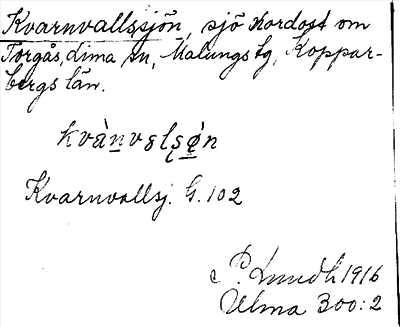 Kvarnvallssjön, sjö nordost om
Torgås, Lima sn, Malungs tg, Koppar-
bergs län.
kvànvslsǿn
Kvarnvallsj. G. 102
P. Lundh 1916
Ulma 300:2